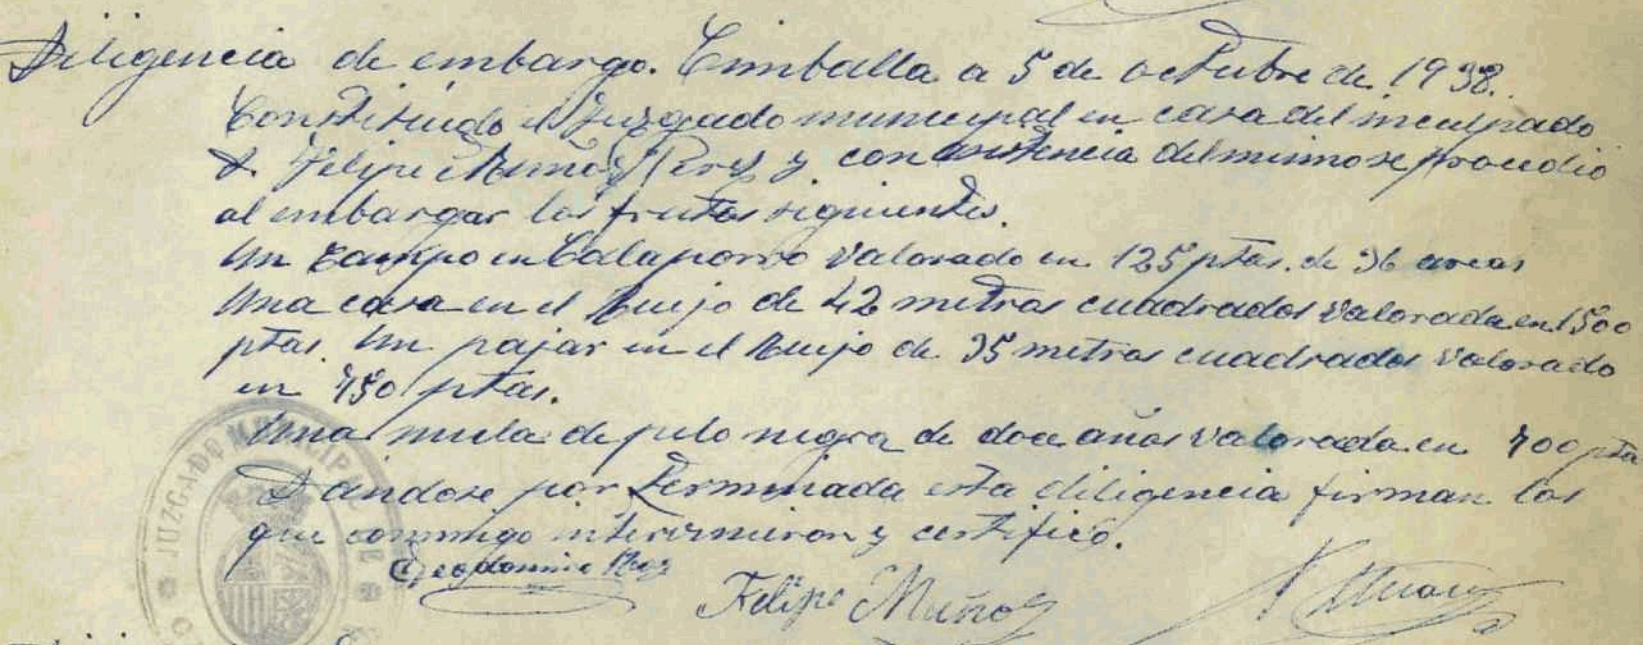 Diligencia de embargo. Cimballa a 5 de octubre de 1938.
Constituido el Juzgado municipal en casa del inculpado
D. Felipe Muñoz Perez y con asistencia del mismo se procedio
al embargar los frutos siguientes.
Un campo en Calaporro valorado en 125 ptas. de 36 areas
Una casa en el de 42 metros cuadrados valorada en 1500
ptas. Un pajar en el de 35 metros cuadrados valorado
en 750 ptas.
Una mula de pelo negra de doce años valorada en 700 pta
Dandose por terminada esta diligencia firman los
que conmigo intervinieron y certifico.
Felipe Muñoz
JUZGADO MUNICIPAL DE